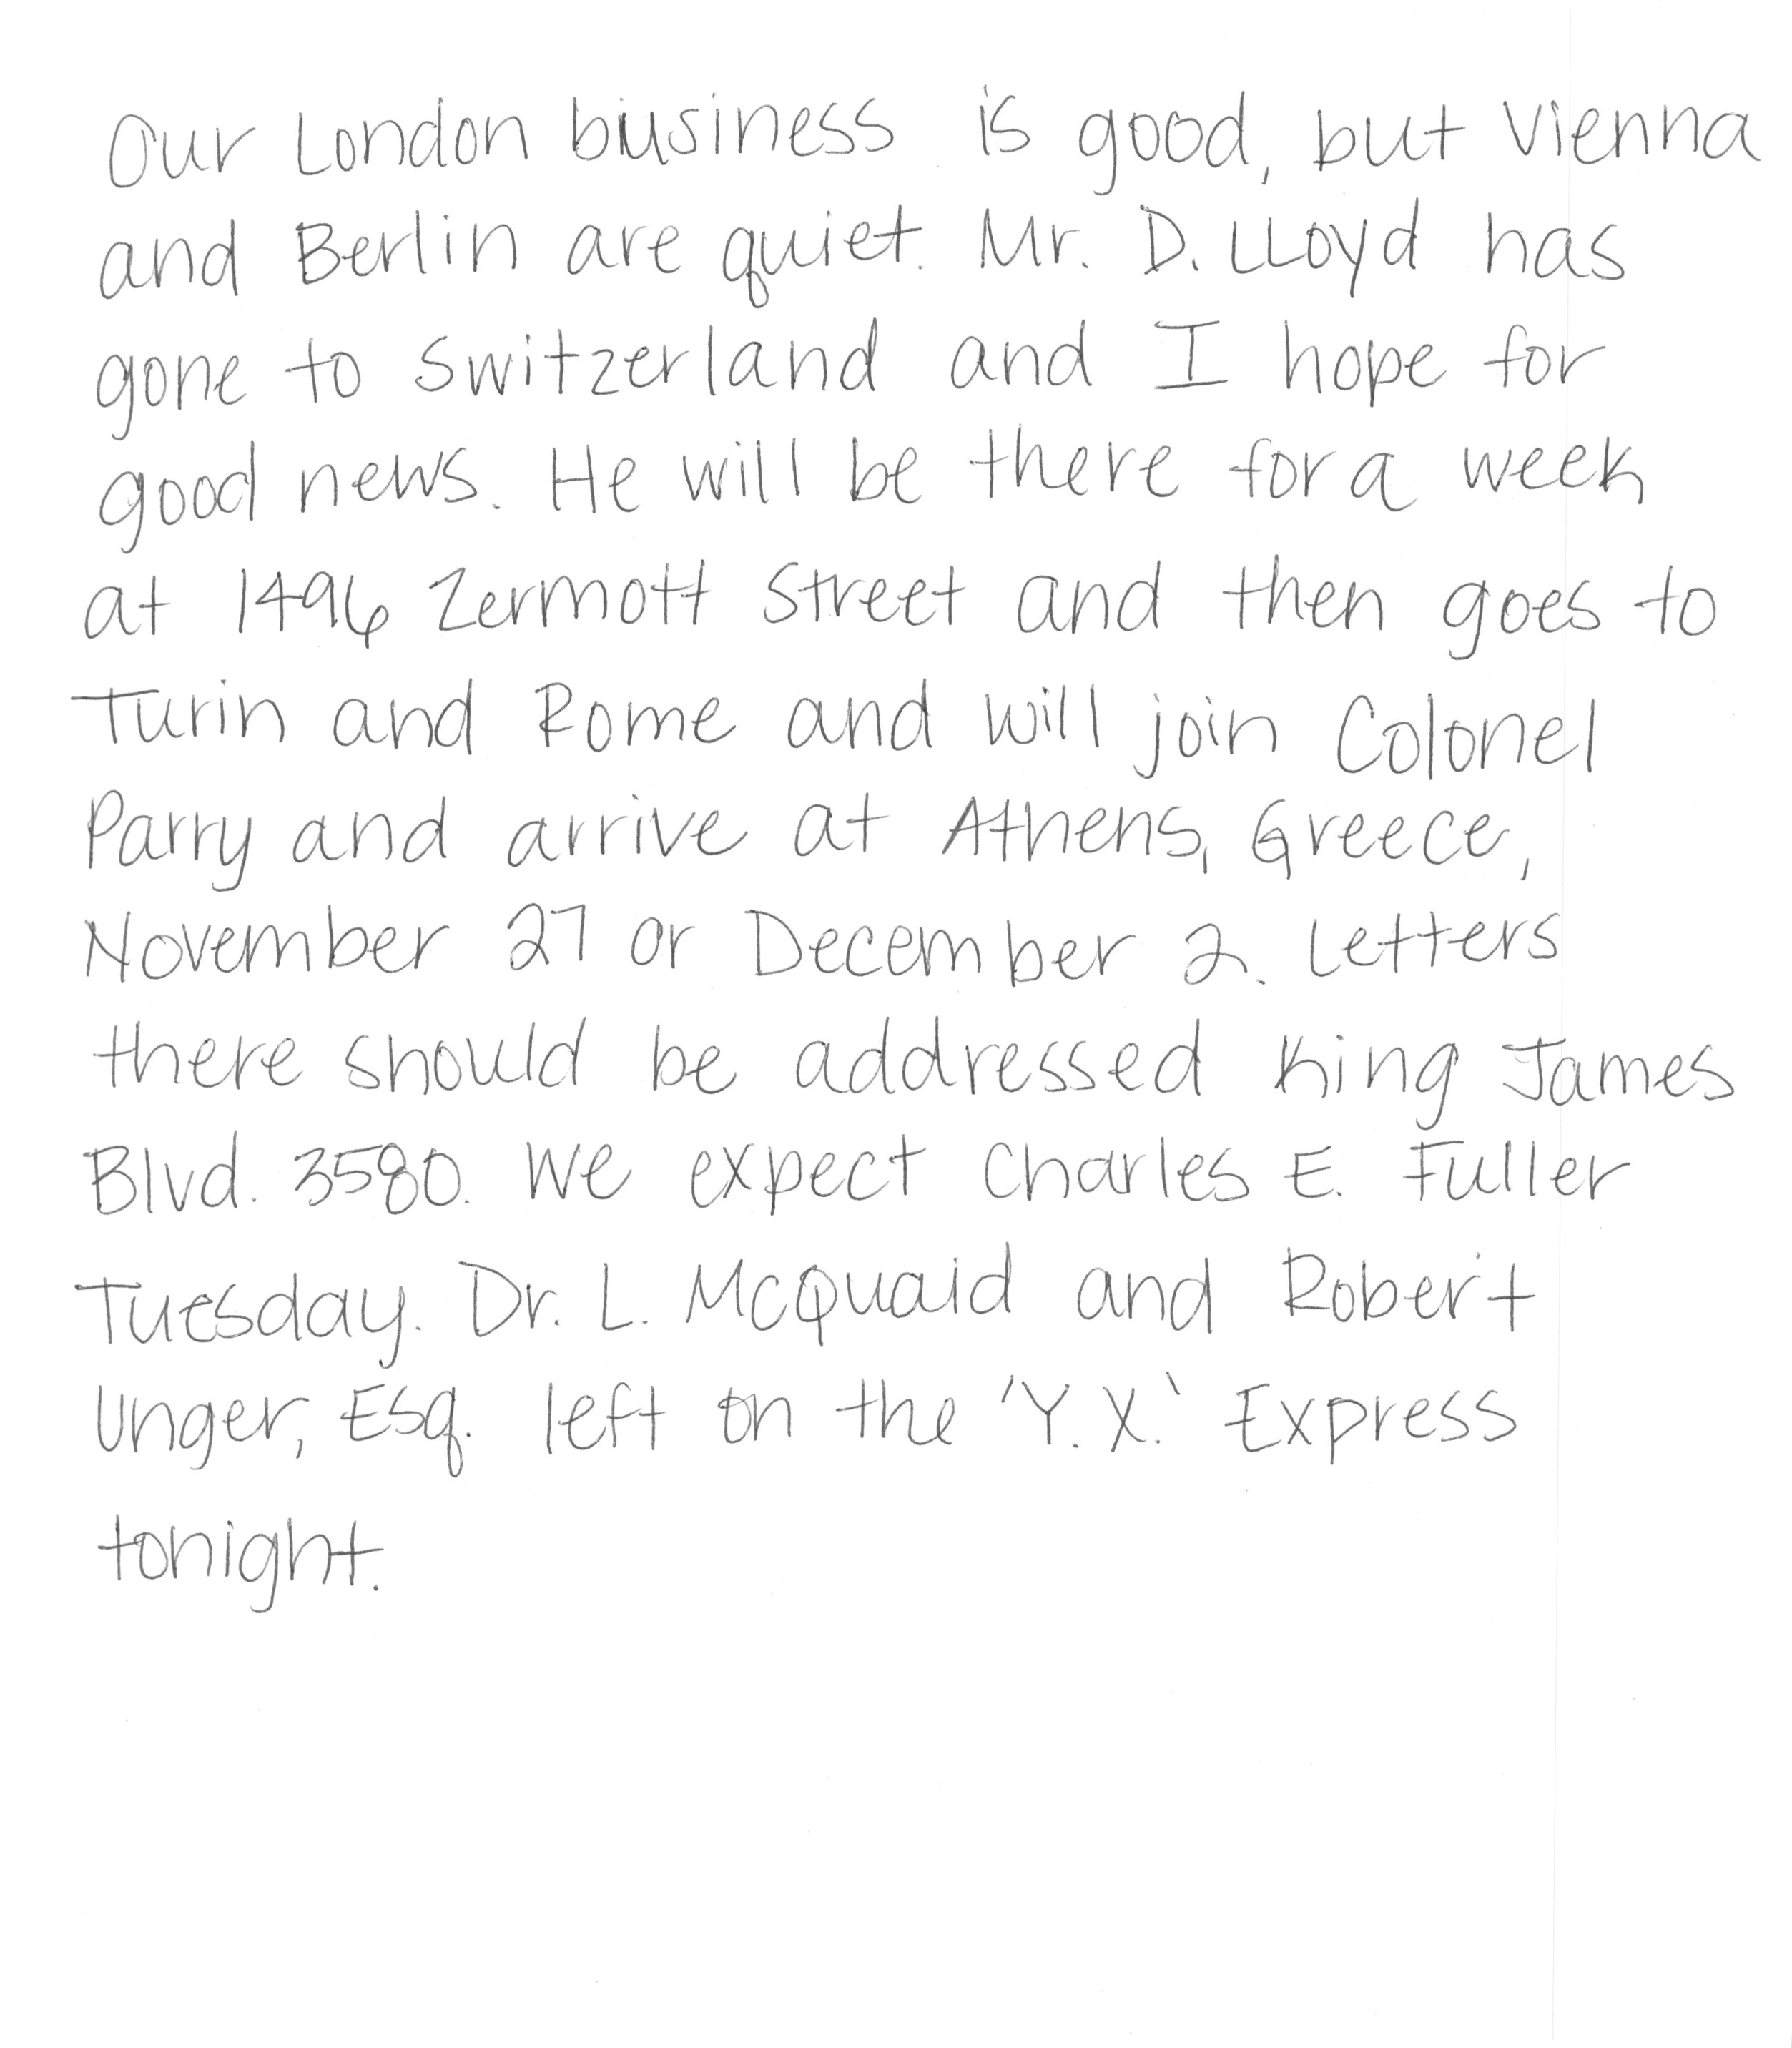 Our London business is good, but Vienna
and Berlin are quiet. Mr. D. LLoyd has
gone to Switzerland and I hope for
good news. He will be there for a week
at 1496 Zermott Street and then goes to
Turin and Rome and will join Colonel
Parry and arrive at Athens, Greece,
November 27 or December 2. Letters
there should be addressed King James
Blvd. 3580. We expect Charles E. Fuller
Tuesday. Dr. L. McQuaid and Robert
Unger, Esq. left on the 'Y.X.' Express
tonight.